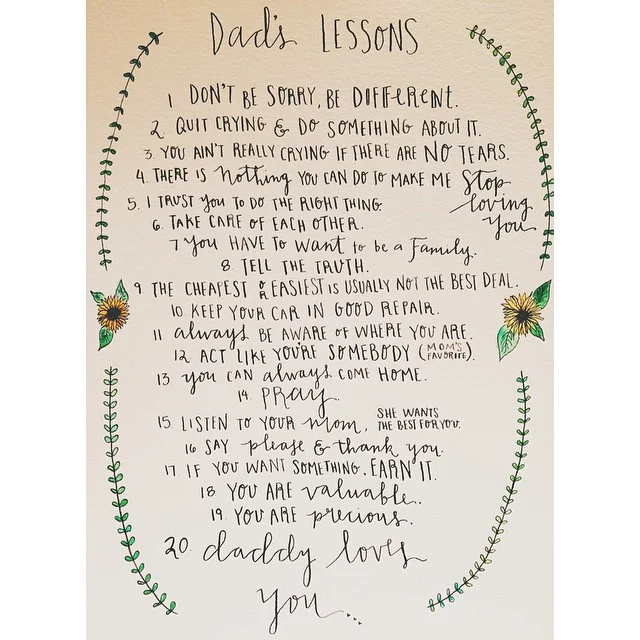 Dad's LESSONS
1 DON'T BE SORRY, BE DIFFERENT.
2. QUIT CRYING & DO SOMETHING ABOUT IT.
3. YOU AIN'T REALLY CRYING IF THERE ARE NO TEARS.
4. THERE IS Nothing YOU CAN DO TO MAKE ME Stop
loving
you
5. I TRUST YOU TO DO THE RIGHT THING.
6. TAKE CARE OF EACH OTHER.
7 you HAVE TO want to be a Family.
8. TELL THE TRUTH.
9 THE CHEAPEST OR EASIEST IS USUALLY NOT THE BEST DEAL.
10 KEEP YOUR CAR IN GOOD REPAIR.
11. always BE AWARE OF WHERE YOU ARE.
12. ACT LIKE YOU'RE SOMEBODY (MOM'S FAVORITE).
13. you CAN always COME HOME.
14. PRAY.
15. LISTEN TO YOUR mom, SHE WANTS
THE BEST FOR YOU.
16 SAY please & thank you.
17. IF YOU WANT SOMETHING, EARN IT.
18 YOU ARE valuable.
19. YOU ARE precious.
20. daddy loves
you...